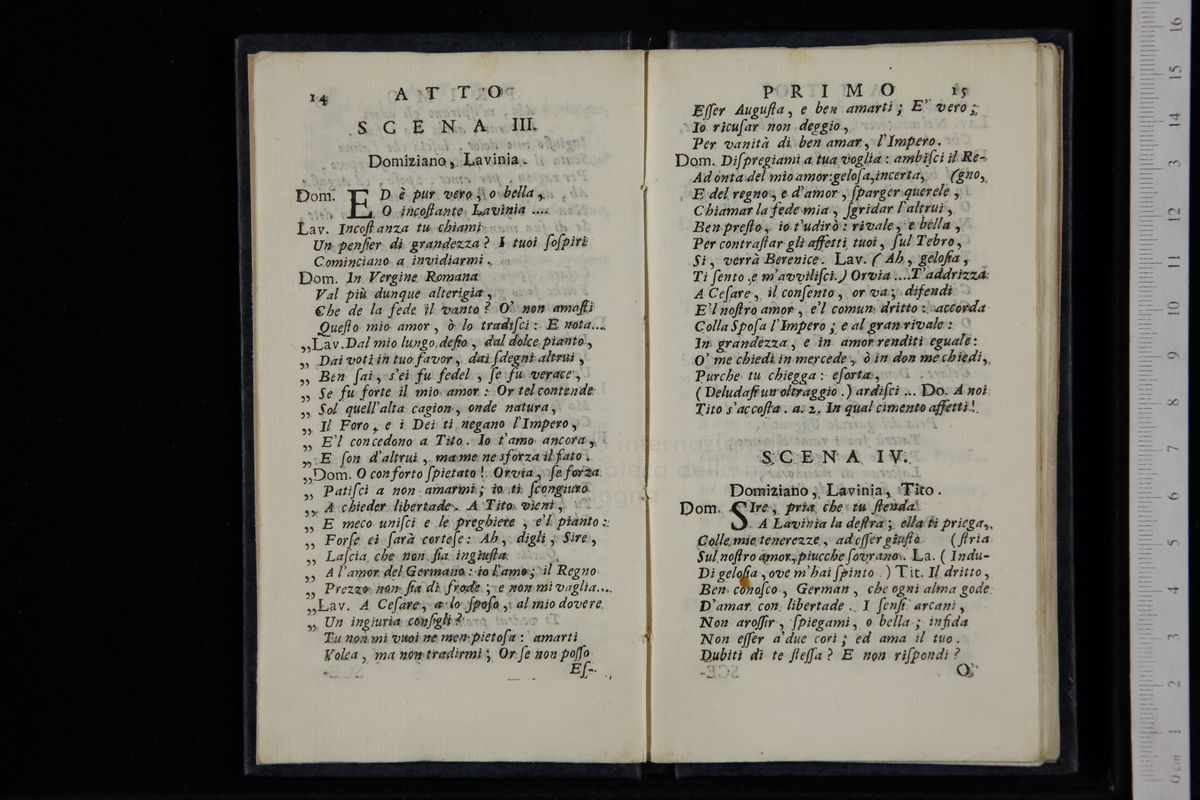 14 ATTO
SCENA III.
Domiziano, Lavinia.
Dom. ED è pur vero, o bella,
O incoſtante Lavinia ....
Lav. Incoſtanza tu chiami
Un penſier di grandezza? I tuoi ſoſpiri
Cominciano a invidiarmi.
Dom. In Vergine Romana
Val più dunque alterigia,
Che de la fede il vanto? O' non amaſti
Queſto mio amor, ò lo tradiſci: E nota...
„Lav. Dal mio lungo deſio, dal dolce pianto,
„ Dai voti in tuo favor, dai ſdegni altrui,
„ Ben ſai, s'ei fu fedel, ſe fu verace,
„ Se fu forte il mio amor: Or tel contende
„ Sol quell'alta cagion, onde natura,
„ Il Foro, e i Dei ti negano l'Impero,
„ E'l concedono a Tito. Io t'amo ancora,
„ E ſon d'altrui, ma me ne sforza il fato.
„Dom. O conforto ſpietato! Orvia, ſe forza
„ Patiſci a non amarmi; io ti ſcongiuro
„ A chieder libertade. A Tito vieni,
„ E meco uniſci e le preghiere, e'l pianto:
„ Forſe ei ſarà corteſe: Ah, digli, Sire,
„ Laſcia che non ſia ingiuſta
„ A l'amor del Germano: io l'amo; il Regno
„ Prezzo non ſia di frode; e non mi vaglia...
„Lav. A Ceſare, a lo ſpoſo, al mio dovere
„ Un ingiuria conſigli?
Tu non mi vuoi ne men pietoſa: amarti
Volea, ma non tradirmi; Or ſe non poſſo
Eſ-
PRIMO 15
Eſſer Auguſta, e ben amarti; E' vero;
Io ricuſar non deggio,
Per vanità di ben amar, l'Impero.
Dom. Diſpregiami a tua voglia: ambiſci il Re-
Ad onta del mio amor: geloſa, incerta, (gno,
E del regno, e d'amor, ſparger querele,
Chiamar la fede mia, ſgridar l'altrui,
Ben preſto, io t'udirò: rivale, e bella,
Per contraſtar gli affetti tuoi, ſul Tebro,
Si, verrà Berenice. Lav. (Ah, geloſia,
Ti ſento, e m'avviliſci.) Orvia ....T'addrizza
A Ceſare, il conſento, or va; difendi
E'l noſtro amor, e'l comun dritto: accorda
Colla Spoſa l'Impero; e al gran rivale:
In grandezza, e in amor renditi eguale:
O' me chiedi in mercede, ò in don me chiedi,
Purche tu chiegga: eſorta,
(Deludaſi un oltraggio.) ardiſci ... Do. A noi
Tito s'accoſta. a. 2. In qual cimento affetti!
SCENA IV.
Domiziano, Lavinia, Tito.
Dom. SIre, pria che tu ſtenda
A Lavinia la deſtra; ella ti priega,
Colle mie tenerezze, ad eſſer giuſto (ſtria
Sul noſtro amor, piucche ſovrano. La. (Indu-
Di geloſia, ove m'hai ſpinto.) Tit. Il dritto,
Ben conoſco, German, che ogni alma gode
D'amar con libertade. I ſenſi arcani,
Non aroſſir, ſpiegami, o bella; infida
Non eſſer a'due cori; ed ama il tuo.
Dubiti di te ſteſſa? E non riſpondi?
O'